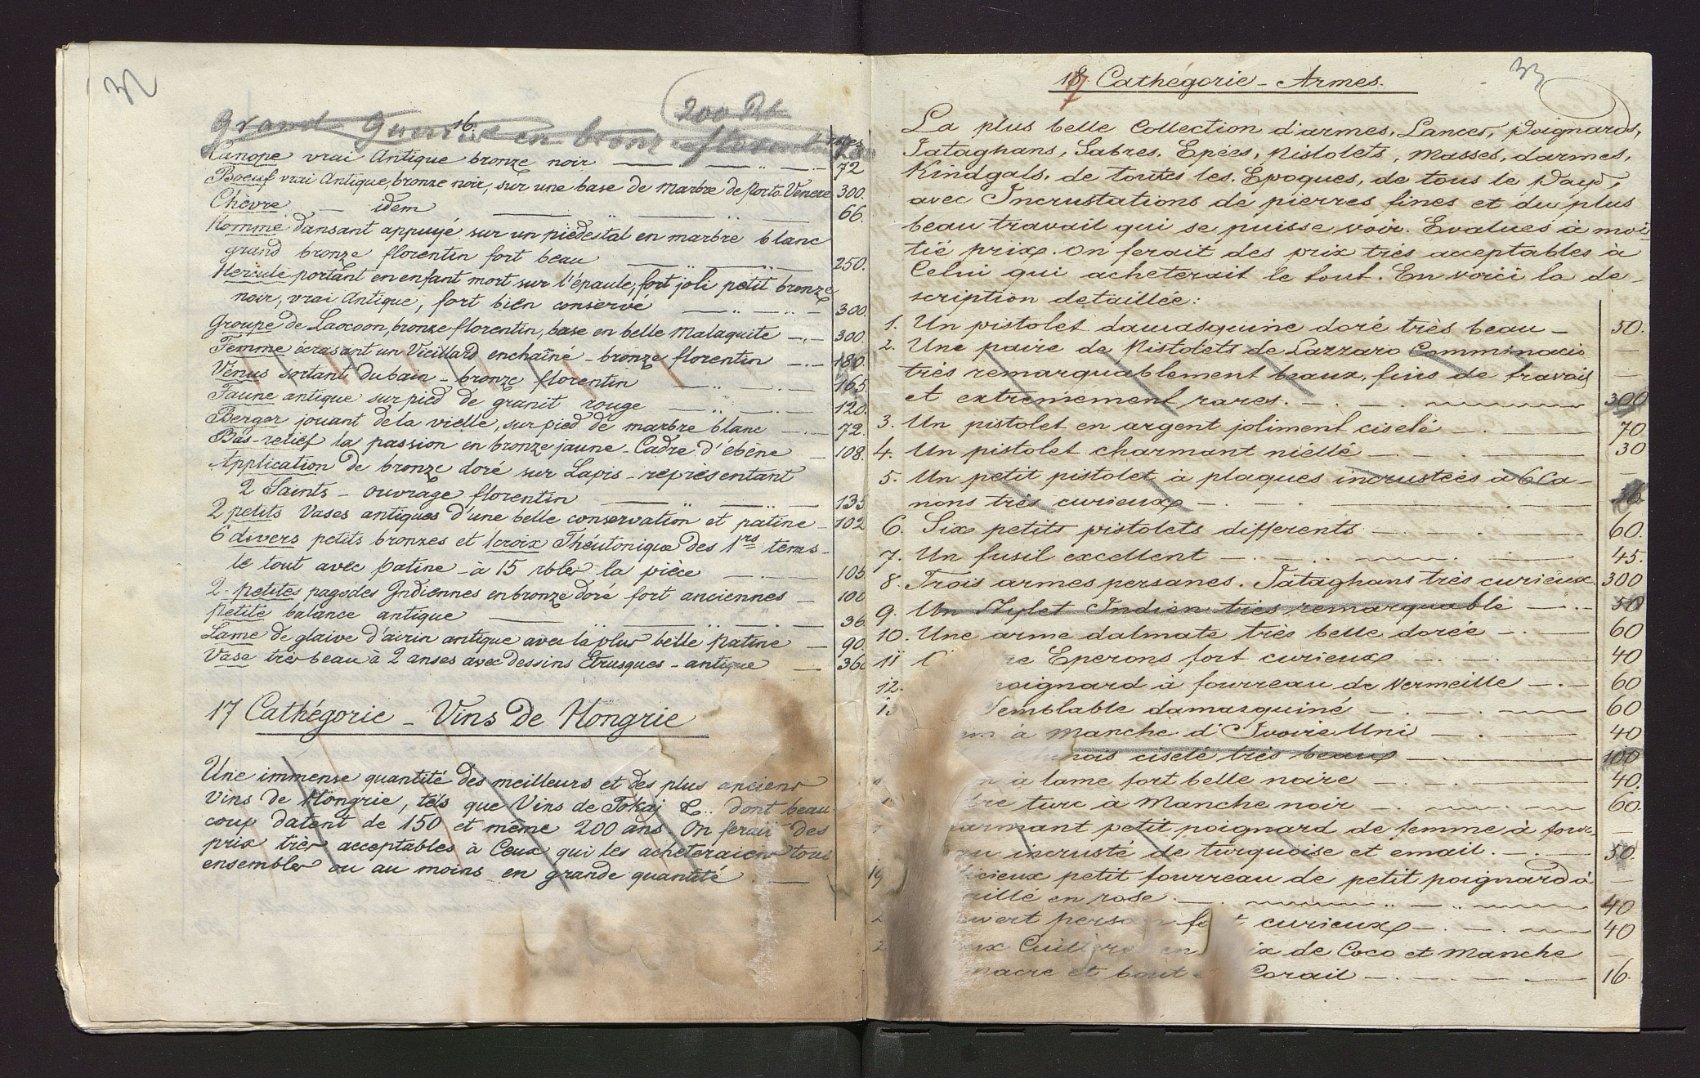 32
200 Rb
Grand Guerrier en bronze florentin
16.
Canope vrai Antique bronze noir 72
Boeuf vrai Antique, bronze noir, sur une base de marbre de Porto Venere 300.
Chèvre idem 66.
Homme dansant appuyé sur un piedestal en marbre blanc
grand bronze florentin fort beau 250.
Hercule portant en enfant mort sur l'épaule, fort joli petit bronze
noir, vrai Antique, fort bien conservé 300.
Groupe de Laocoon, bronze florentin, base en belle Malaquite 300
Femme écrasant un Vieillard enchaîné - bronze florentin 180.
Vénus sortant du bain - bronze florentin 165
Faune antique sur pied de granit rouge 120.
Berger jouant de la vielle, sur pied de marbre blanc 72.
Bas-relief la passion en bronze jaune - Cadre d'ébène 108.
Application de bronze doré sur Lapis - représentant
2 Saints - ouvrage florentin 135
2 petits Vases antiques d'une belle conservation et patine - 102
6 divers petits bronzes et 1 croix Théutonique des 1rs tems -
le tout avec patine - à 15 rbles la pièce 105.
2 petites pagodes Indiennes en bronze doré fort anciennes - 100
Petite balance antique 36.
Lame de glaive d'airin antique avec la plus belle Patine - 90.
Vase très beau à 2 anses avec dessins Etrusques - antique 36.
17 Cathégorie - Vins de Hongrie
Une immense quantité des meilleurs et des plus anciens
Vins de Hongrie, tels que Vins de Tokaj &.. dont beau-
coup datent de 150 et même 200 ans. On ferait des
prix très acceptables à Ceux qui les acheteraient tous
ensembles ou au moins en grande quantité
33
18 Cathégorie - Armes.
La plus belle Collection d'armes, Lances, Poignards,
Jataghans, Sabres, Epées, Pistolets, Masses, d'armes,
Kindgals, de toutes les Epoques, de tous le Pays,
avec Incrustations de pierres fines et du plus
beau travail qui se puisse voir. Evalués à moi
tié prix. On ferait des prix très acceptables à
Celui qui acheterait le tout. En voici la de-
scription detaillée:
1. Un pistolet damasquiné doré très beau - 50.
2. Une paire de Pistolets de Lazzaro Comminacio
très remarquablement beaux, fins de travail
et extrêmement rares. 300
3. Un pistolet en argent joliment ciselé 70
4. Un pistolet charmant niéllé 30
5. Un petit pistolet à plaques incrustées à 6 Ca-
nons très curieux
6. Six petits pistolets differents 60.
7. Un fusil excellent 45.
8. Trois armes persanes. Jataghans très curieux 300
9. Un Stylet Indien très remarquable 50
10. Une arme dalmate très belle dorée 60
11 Eperons fort curieux 40
12. poignard à fourreau de Vermeille 60
semblable damasquiné 60
à Manche d'Ivoire Uni 40
ciselé très beau 100
à lame fort belle noire 40.
turc à Manche noir 60.
charmant petit poignard de femme à four
incrusté de turquoise et émail. 50.
19 petit fourreau de petit poignard à
en rose 40
curieux 40
de Coco et Manche
nacre et bout Corail 16.